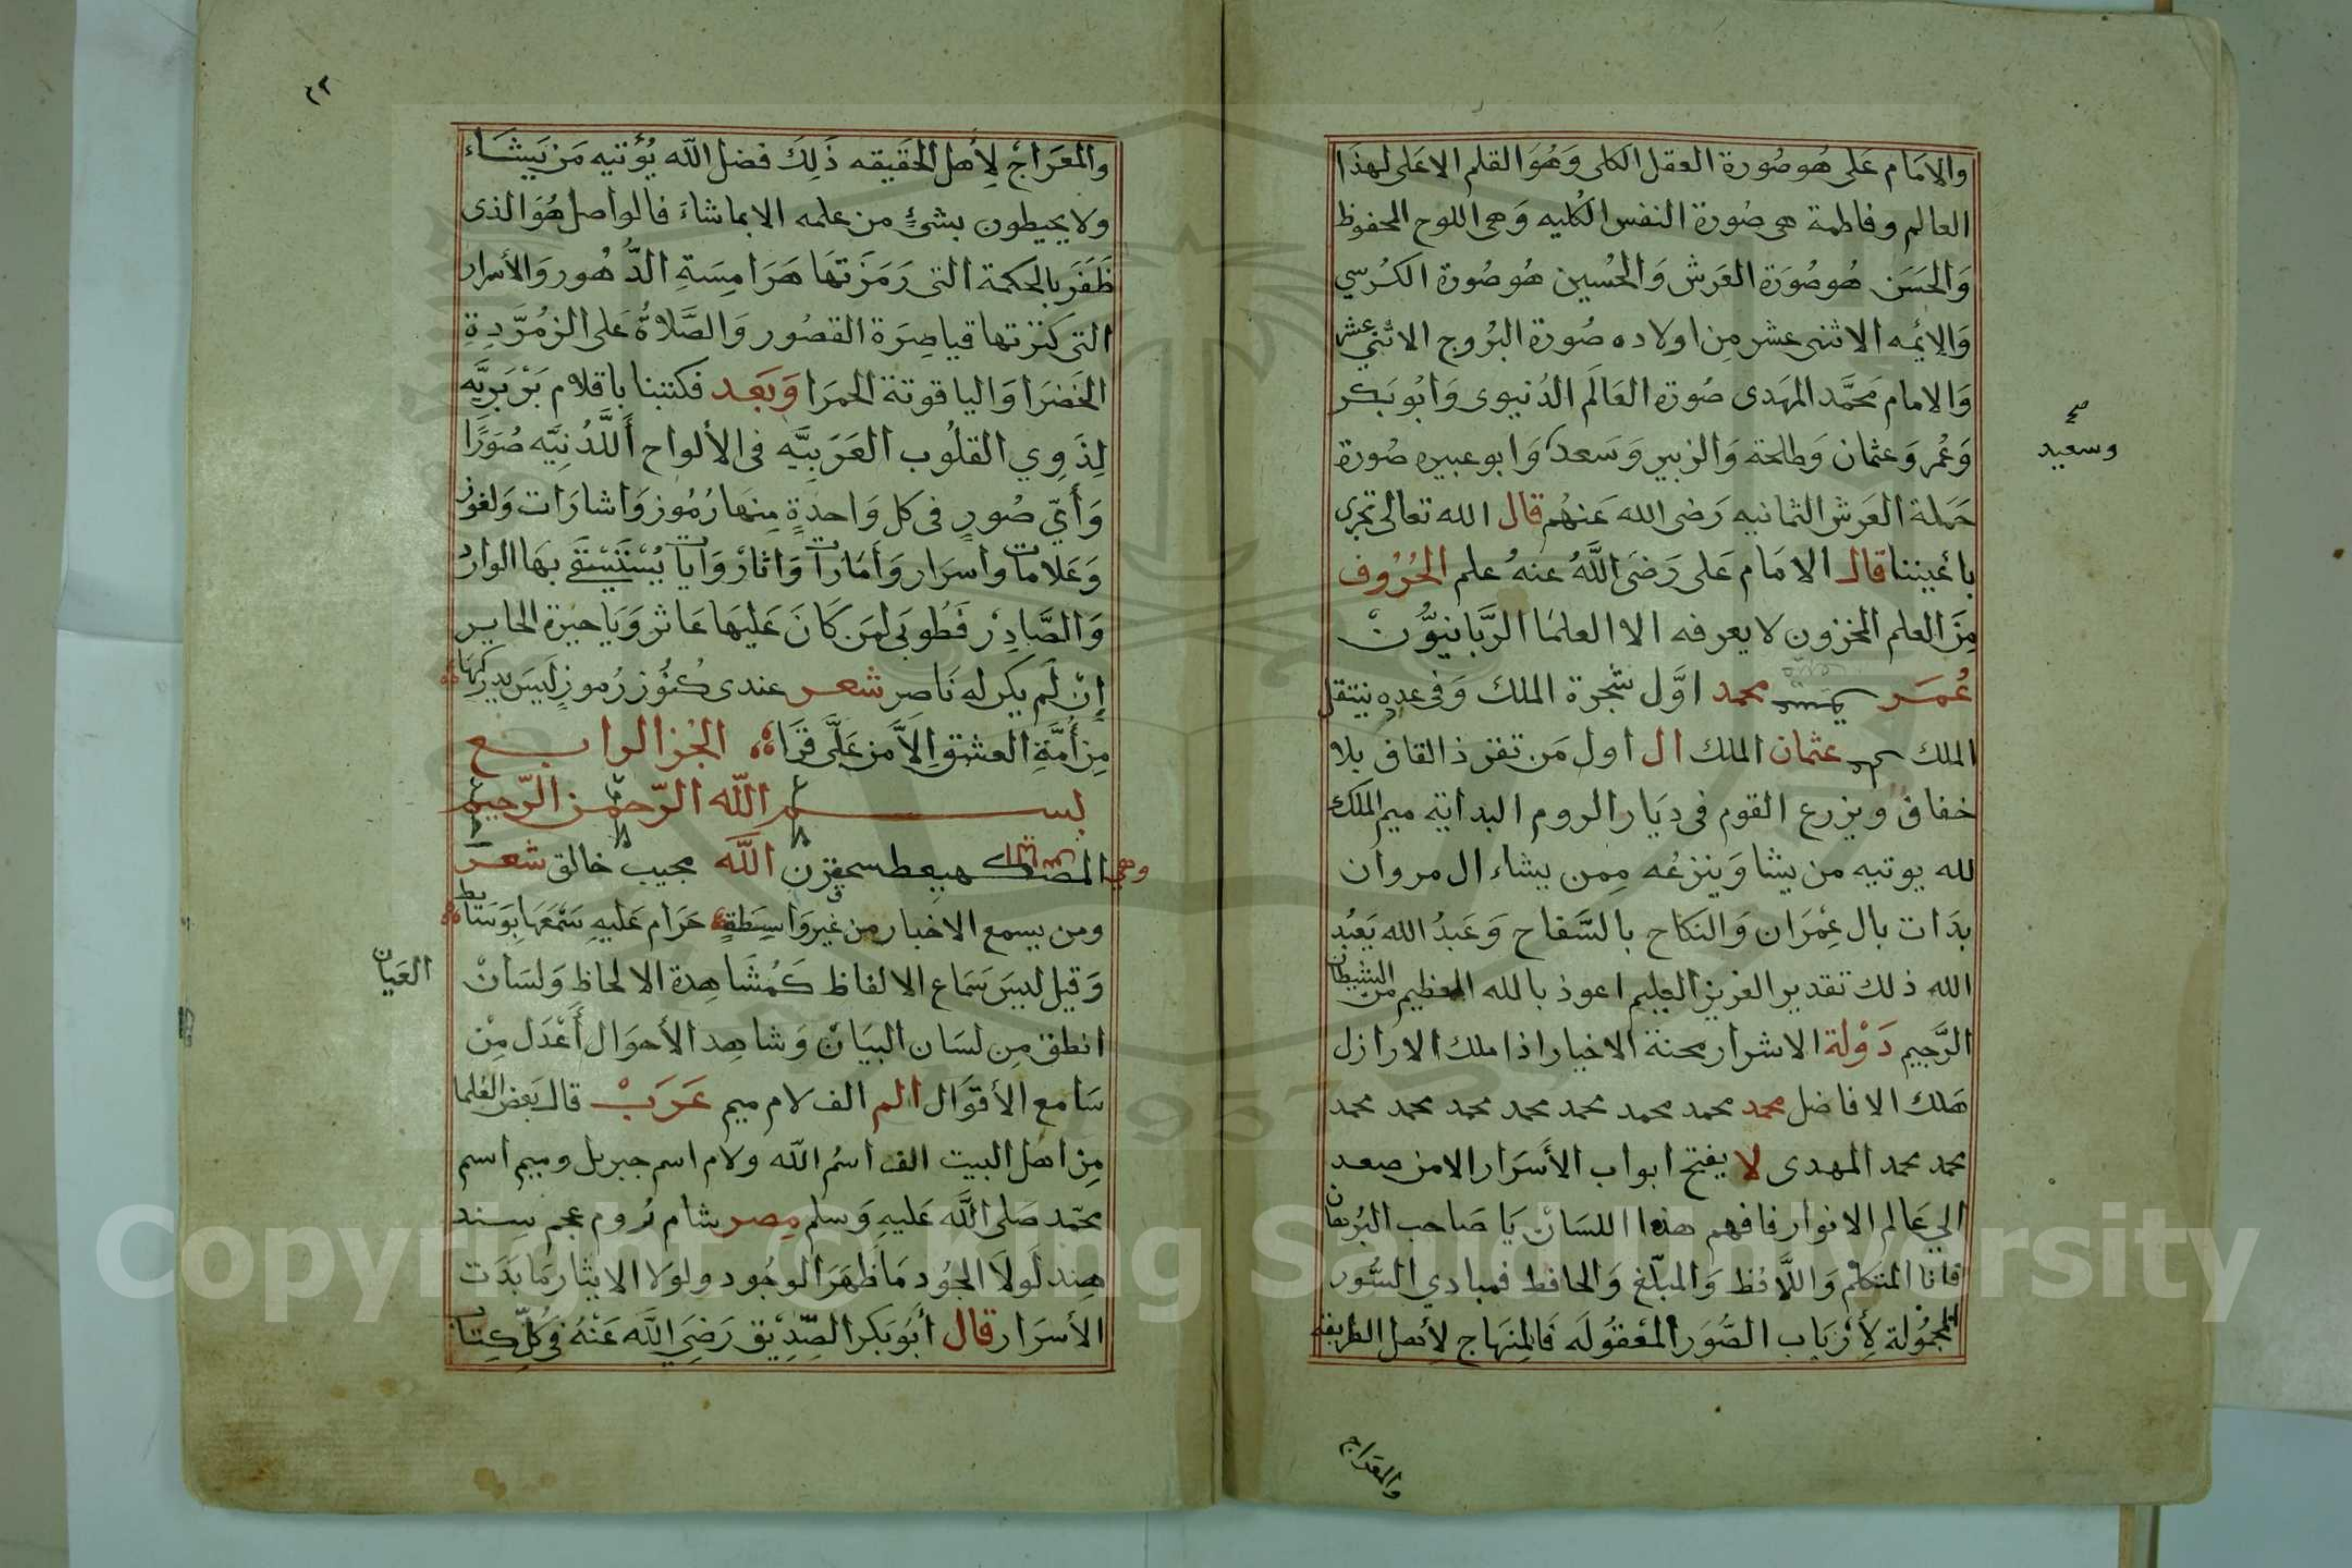 والامام على هو صورة العقل الكلى وهو القلم الاعلى لهذا
العالم وفاطمة هى صورة النفس الكليه وهى اللوح المحفوظ
والحسن هو صورة العرش والحسين هو صورة الكرسي
والايمه الاثنى عشر من اولاده صورة البروج الاثنى عشر
والامام محمد المهدى صورة العالم الدنيوى وابو بكر
وعمر وعثمان وطلحة والزبير وسعد وابو عبيده صورة
صح
وسعيد
حملة العرش الثمانيه رضى الله عنهم قال الله تعالى تجرى
باعيننا قال الامام على رضى الله عنه علم الحروف
من العلم المخزون لا يعرفه الا العلما الربانيون
عمر محمد اول شجرة الملك وفى عده ينتقل
الملك عثمان الملك ال اول من تفرذ القاف بلا
خفاق ويزرع القوم فى ديار الروم البداية ميم الملك
لله يوتيه من يشا وينزعه ممن يشاء ال مروان
بدات بال عمران والنكاح بالسفاح وعبد الله يعبد
الله ذلك تقدير العزيز العليم اعوذ بالله العظيم من الشيطان
الرجيم دولة الاشرار محنة الاخيار اذا ملك الارازل
هلك الافاضل محمد محمد محمد محمد محمد محمد محمد محمد
محمد محمد المهدى لا يفتح ابواب الأسرار الا من صعد
الي عالم الانوار فافهم هذا اللسان يا صاحب البرهان
فانا المتكلم واللافظ والمبلغ والحافظ فمبادي السور
المجموله لأرباب الصور المعقوله فالمنهاج لأهل الطريقه
والمعراج
٤٢
والمعراج لأهل الحقيقه ذلك فضل الله يؤتيه من يشاء
ولا يحيطون بشئ من علمه الا بما شاء فالواصل هو الذى
ظفر بالحكمة التى رمزتها هرامسة الدهور والأسرار
التى كنزتها قياصرة القصور والصلاة على الزمردة
الخضرا والياقوتة الحمرا وبعد فكتبنا باقلام بربريه
لذوي القلوب العربيه فى الألواح اللدنيه صورا
وأي صور فى كل واحدة منها رموز واشارات ولغوز
وعلامات واسرار وأمارات واثار وايات يستسقى بها الوارد
والصادر فطوبى لمن كان عليها عاثر ويا حيرة الحاير
إن لم يكن له ناصر شعر عندى كنوز رموز ليس يدركها
من أمة العشق الا من على قرا الجزالرابع
بسم الله الرحمن الرحيم
الله مجيب خالق شعر
ومن يسمع الاخبار من غير واسطة حرام عليه سمعها بوسائط
وقيل ليس سماع الالفاظ كمشاهدة الالحاظ ولسان
العيان
انطق من لسان البيان وشاهد الأحوال أعدل من
سامع الأقوال الم الف لام ميم عرب قال بعض العلما
من اهل البيت الف اسم الله ولام اسم جبريل وميم اسم
محمد صلى الله عليه وسلم مصر شام روم عجم سند
هند لولا الجود ما ظهر الوجود ولولا الايثار ما بدت
الأسرار قال أبو بكر الصديق رضي الله عنه فى كل كتاب
Copyright © King Saud University
1957